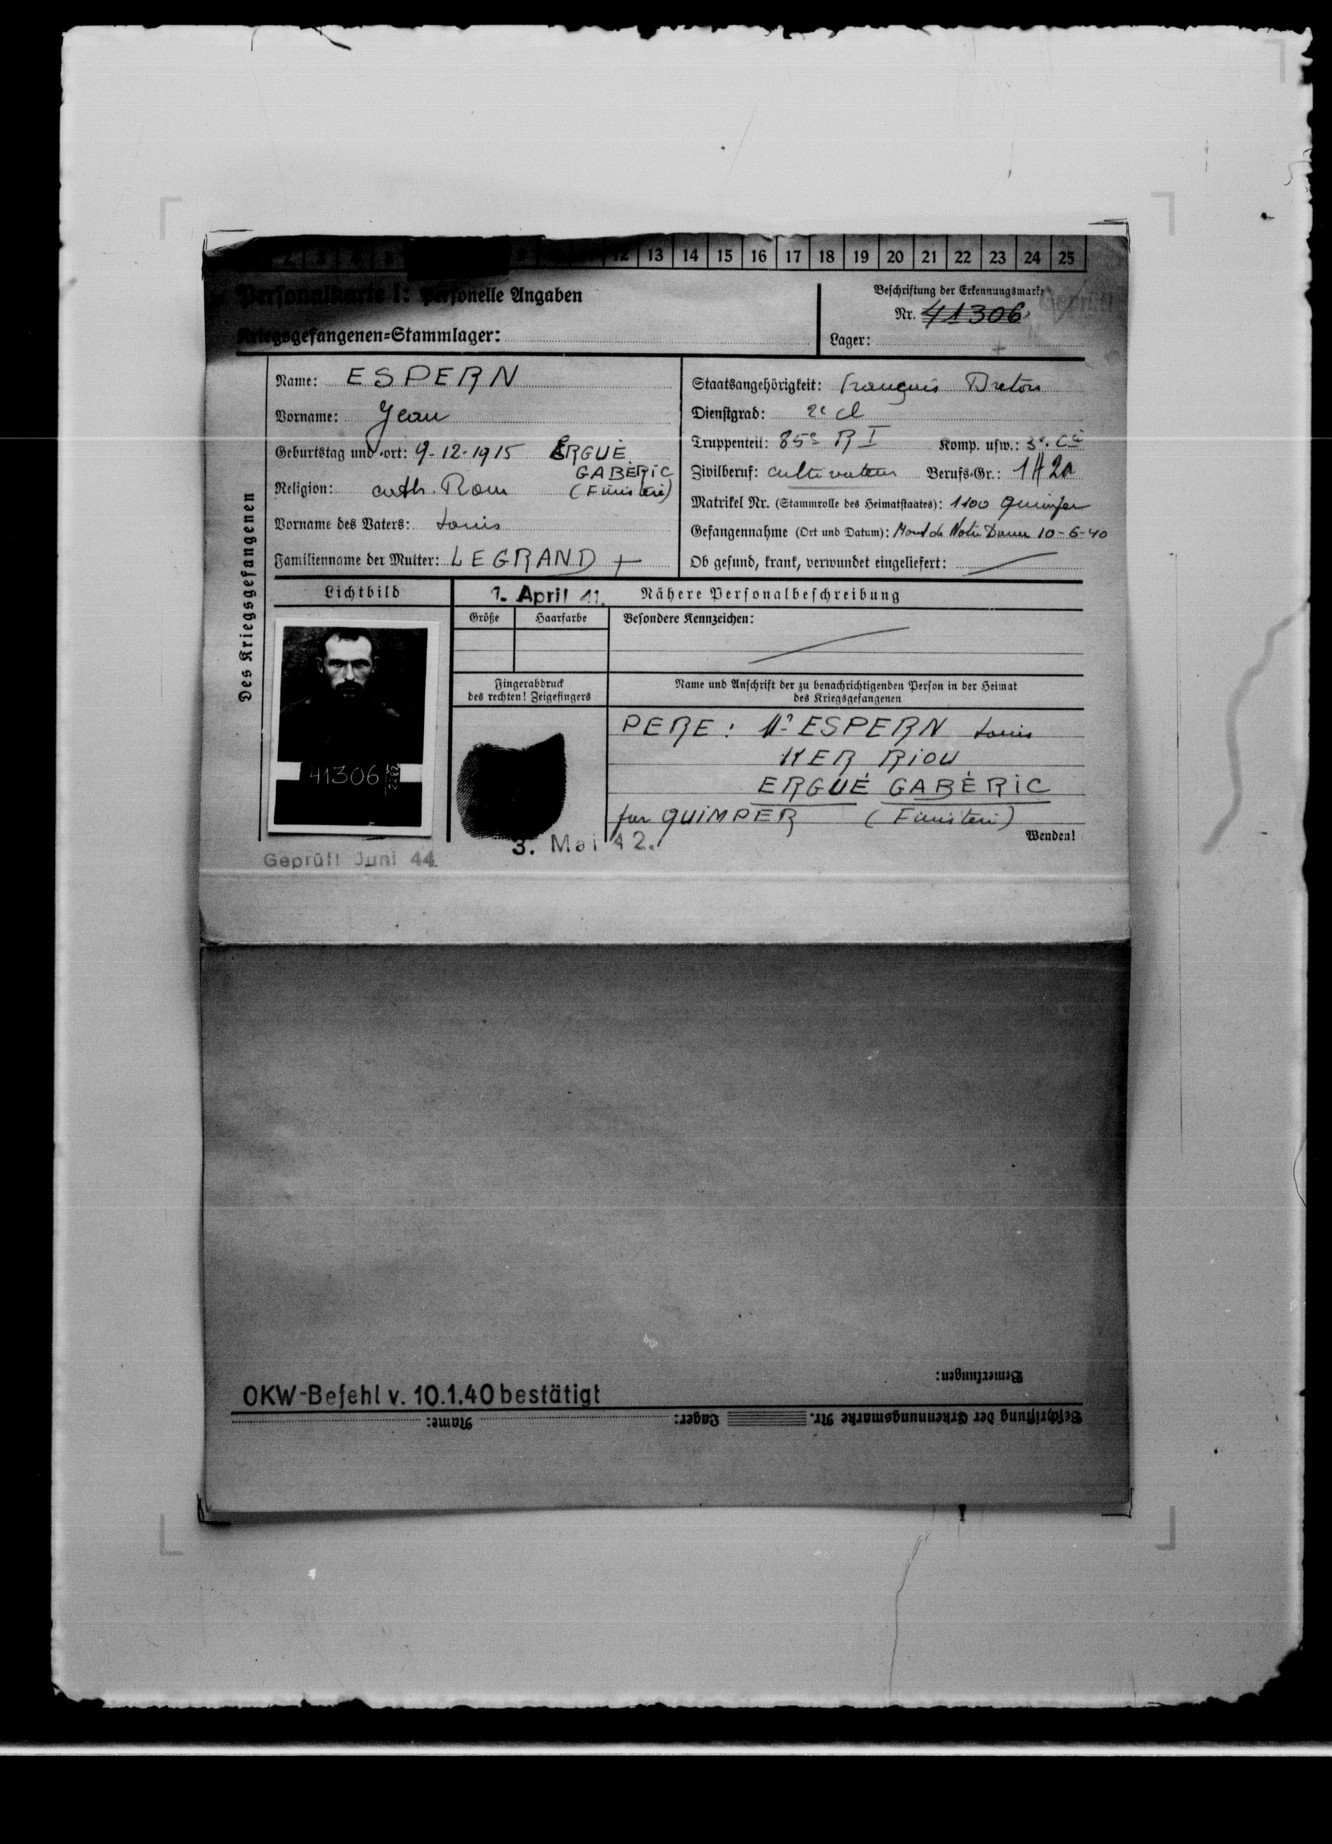 12 13 14 15 16 17 18 19 20 21 22 23 24 25
Personalkarte I: Personelle Angaben
Kriegsgefangenen-Stammlager:
Beschriftung der Erkennungsmarke
Nr. 41306
Lager:
Geprüft
Des Kriegsgefangenen
Name: ESPERN
Vorname: Jean
Geburtstag und -ort: 9-12-1915 ERGUÉ
GABÉRIC
Religion: cath. Rom (Finistère)
Vorname des Vaters: Louis
Familienname der Mutter: LEGRAND +
Staatsangehörigkeit: Français Breton
Dienstgrad: 2e cl
Truppenteil: 85e R I Komp. usw.: 3e Cie
Zivilberuf: cultivateur Berufs-Gr.: 1H2a
Matrikel Nr. (Stammrolle des Heimatstaates): 1100 Quimper
Gefangennahme (Ort und Datum): Mont de Notre Dame 10-6-40
Ob gesund, krank, verwundet eingeliefert:
Lichtbild
1. April 41. Nähere Personalbeschreibung
Größe Haarfarbe Besondere Kennzeichen:
Fingerabdruck
des rechten! Zeigefingers
Name und Anschrift der zu benachrichtigenden Person in der Heimat
des Kriegsgefangenen
PERE: Mr ESPERN Louis
KER RIOU
ERGUÉ GABÉRIC
par QUIMPER (Finistère)
Wenden!
41306
3. Mai 42.
Geprüft Juni 44
Bemerkungen:
OKW-Befehl v. 10.1.40 bestätigt
Beschriftung der Erkennungsmarke Nr. Lager: Name: